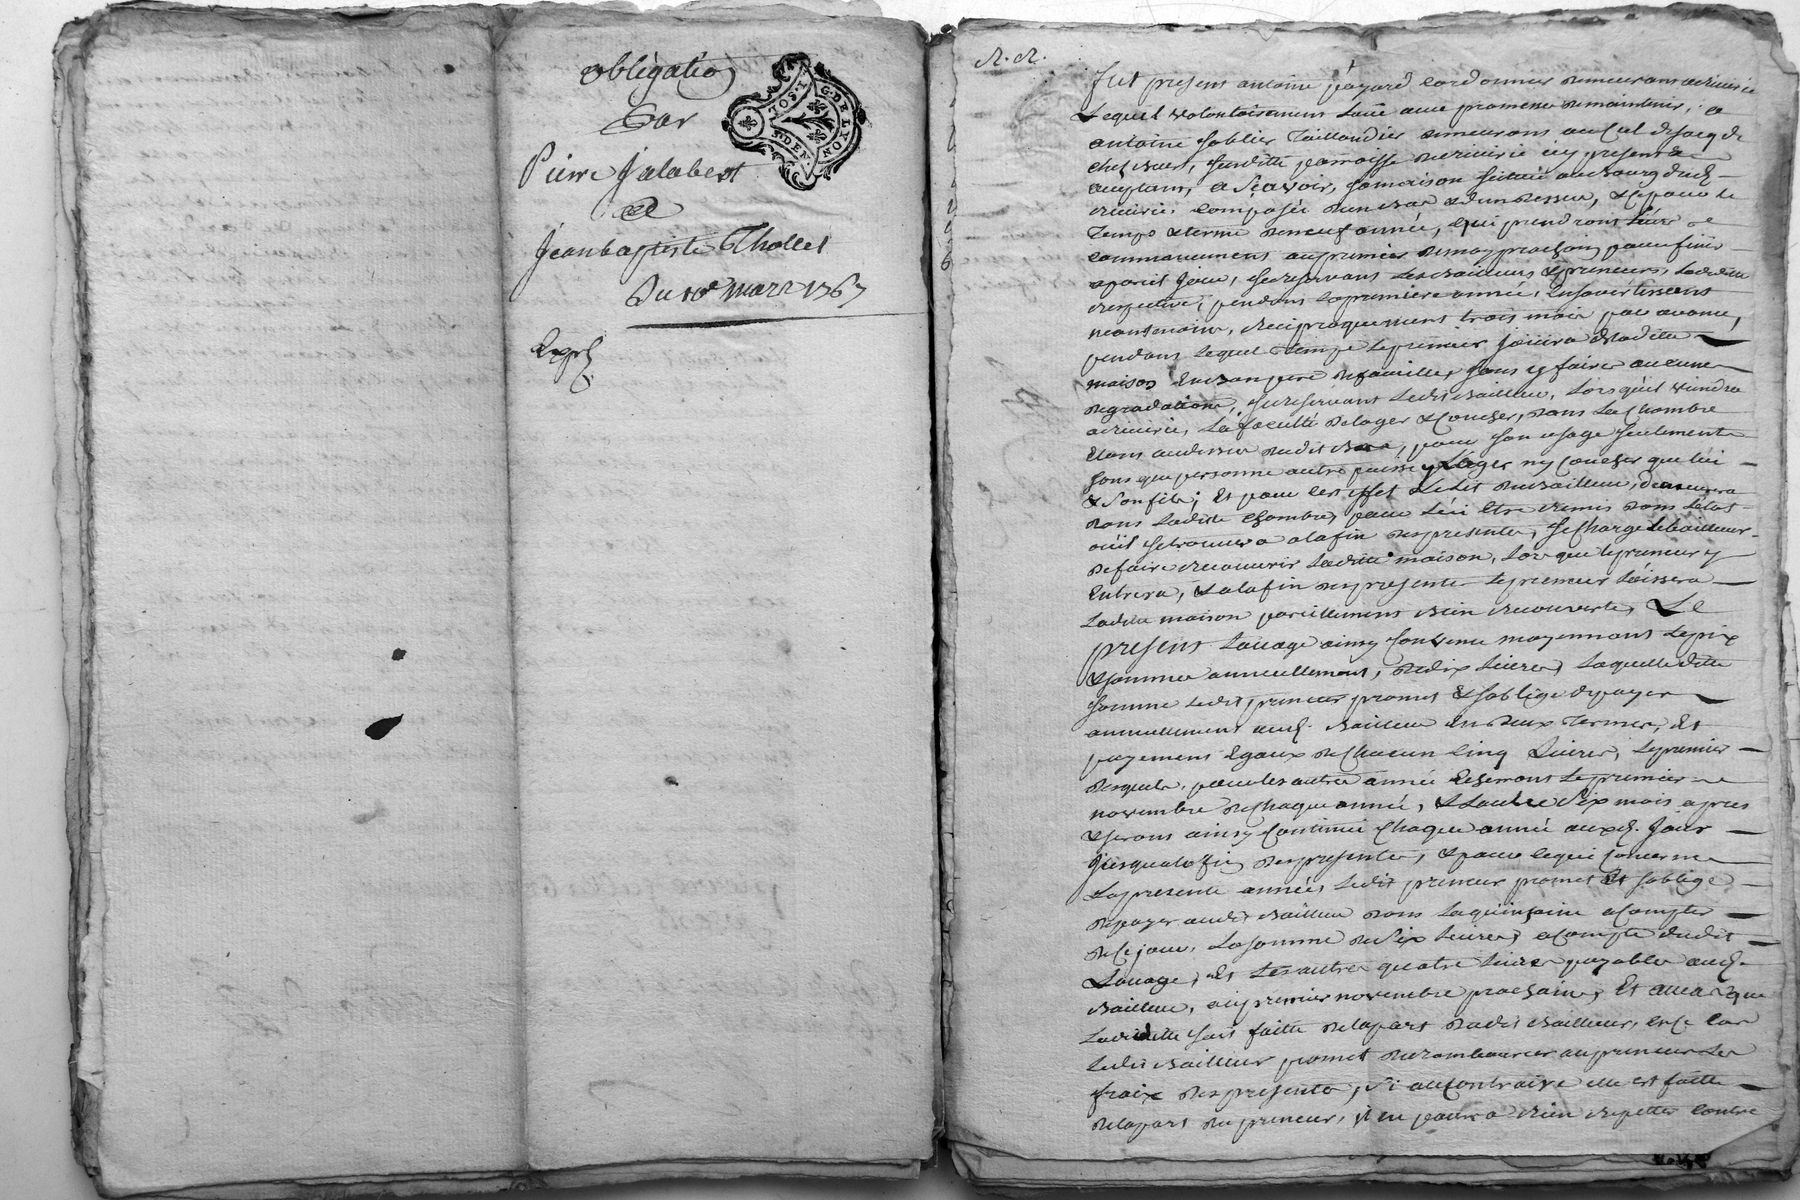 obligaõn
Par
Pierre Jalabert
a
Jean baptiste Thollet
Du 10e mars 1767
Expéd.
G. DE LYON
2. SOLS
8. DEN.
R. R.
Fut present antoine payard Cordonnier demeurant a riverie
Lequel volontairement Loue avec promesse de maintenir, a
antoine soblier Taillandier demeurant au Cul de sacq de
chez Buet, susditte parroisse de riverie icy present &
acceptant, a Sçavoir, sa maison située au Bourg dud.
riverie, composée d'un Bas & d'un dessus, & ce pour le
Temps & terme de neuf année, qui prendront Leur
commancement au premier de may prochain pour finir
a pareil jour, se reservant Les Bailleurs & preneurs, Laditte
respective, pendant la premiere année, En s'avertissant
neantmoins, reciproquement trois mois par avance,
pendant Lequel temps le preneur jouira de laditte
maison En Bon pere de famille, sans y faire aucune
degradations, se reservant Ledit Bailleur, Lorsqu'il viendra
a riverie, La faculté de loger & Coucher, dans La Chambre
Etant au dessus dudit Bas, pour son usage seulement
sans que personne autre puisse y Loger ny Coucher que lui
& son fils; Et pour cet effet Le Lit du Bailleur, demeurera
dans Laditte Chambre, pour lui Etre remis dans L'état
ou il se trouvera a la fin des presentes, se Charge le bailleur
de faire recouvrir Laditte maison, Lorsque le preneur y
Entrera, & a la fin des presentes le preneur Laissera
Laditte maison pareillement bien recouverte, Le
present Louage ainsy Convenu moyennant Le prix
& somme annuellement, de dix Livres, Laquelle ditte
somme Ledit preneur promet & s'oblige de payer
annuellement aud. Bailleur En deux Termes, Et
payement Egaux de Chacun Cinq Livres, Le premier
desquels, pour les autres année Echerront Le premier
novembre de Chaque année, & L'autre Six mois apres
& seront ainsy Continué Chaque année auxd. jours
jusqu'a la fin des presentes, & pour ce qui concerne
La presente année, Ledit preneur promet Et s'oblige
de payer audit Bailleur dans La quinzaine a Compter
de Ce jour, La somme de Six Livres, a Compte dudit
Louage, Et Les autres quatre Livres payables aud.
Bailleur, au premier novembre prochain, Et au cas que
Laditte soit faitte de la part dudit Bailleur, En ce Cas
Ledit Bailleur promet de rembourcer au preneur Les
fraix des presentes, Si au Contraire elle est faitte
de la part du preneur, il ne pourra Rien Repetter Contre